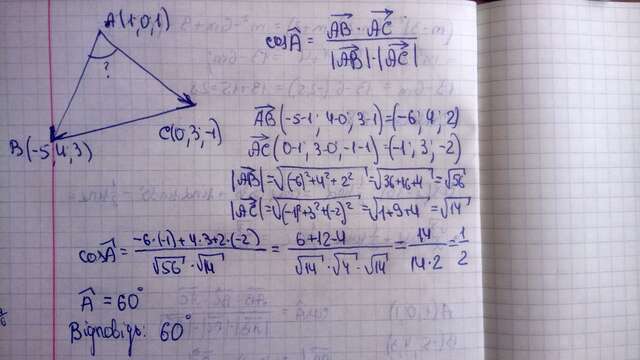 A(1,0,1)
?
B(-5,4,3)
C(0,3,-1)
cosA = AB · AC / |AB|·|AC| =
AB(-5-1; 4-0; 3-1)=(-6; 4; 2)
AC(0-1; 3-0; -1-1)=(-1; 3; -2)
|AB|=√(-6)²+4²+2² =√36+16+4 =√56
|AC|=√(-1)²+3²+(-2)² =√1+9+4 =√14
cosA = -6·(-1)+4·3+2·(-2) / √56 · √14 = 6+12-4 / √14 · √4 · √14 = 14 / 14·2 = 1/2
A = 60°
Відповідь: 60°